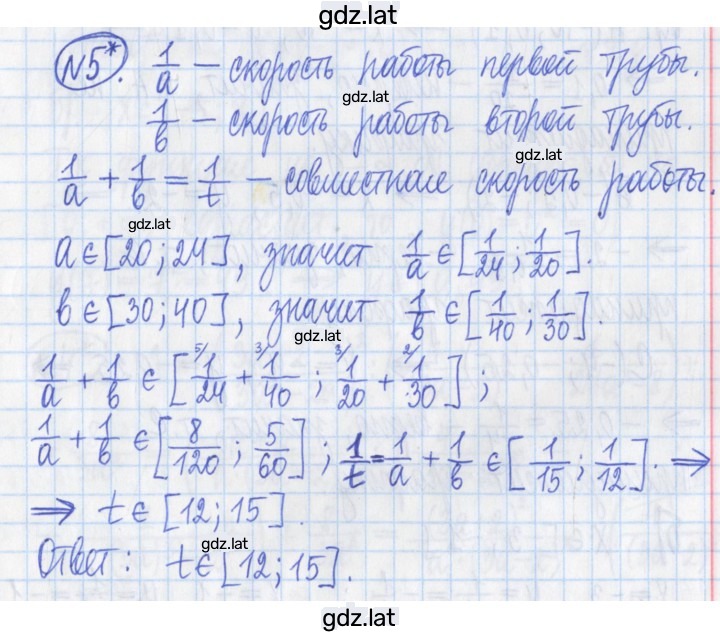 gdz.lat
№5*. 1/a – скорость работы первой трубы.
gdz.lat
1/b – скорость работы второй трубы.
gdz.lat
1/a + 1/b = 1/t – совместная скорость работы.
gdz.lat
a ∈ [20; 24], значит 1/a ∈ [1/24; 1/20].
b ∈ [30; 40], значит 1/b ∈ [1/40; 1/30].
gdz.lat
1/a + 1/b ∈ [⁵⁾1/24 + ³⁾1/40 ; ³⁾1/20 + ²⁾1/30] ;
1/a + 1/b ∈ [8/120 ; 5/60] ; 1/t = 1/a + 1/b ∈ [1/15 ; 1/12]. ⇒
⇒ t ∈ [12; 15].
gdz.lat
Ответ: t ∈ [12; 15].
gdz.lat